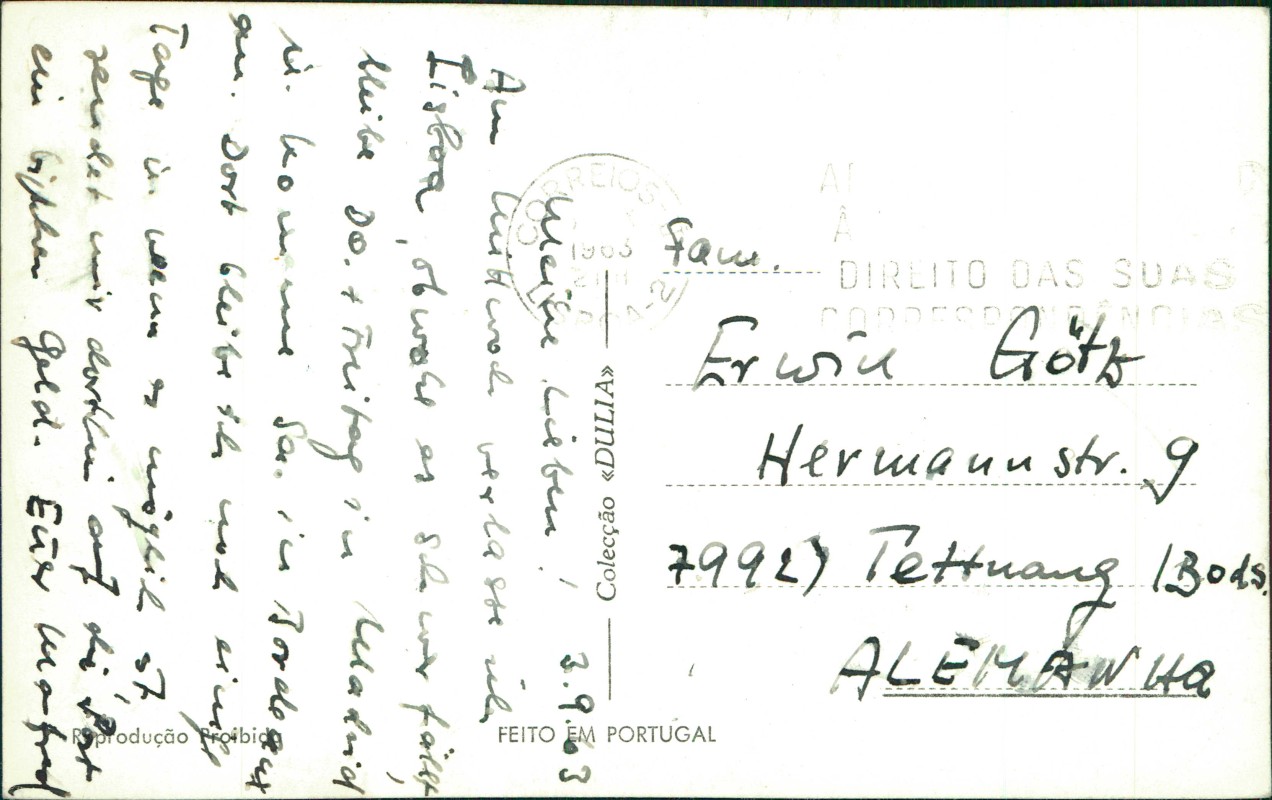 Meine Lieben! 3.9.63
Am Mittwoch verlasse ich
Lisboa, obwohl es schwer fällt,
bleibe Do. + Freitag in Madrid
u. komme Sa. in Bordeaux
an. Dort bleibe ich noch einige
Tage u. wenn es möglich ist,
sendet mir dorthin auf die Post
ein bißchen Geld. Euer Manfred
CORREIOS
1963
Colecção «DULIA»
DIREITO DAS SUAS
CORRESPONDÊNCIAS
Fam.
Erwin Götz
Hermannstr. 9
7992) Tettnang /Bods.
ALEMANHA
Reprodução Proibida
FEITO EM PORTUGAL